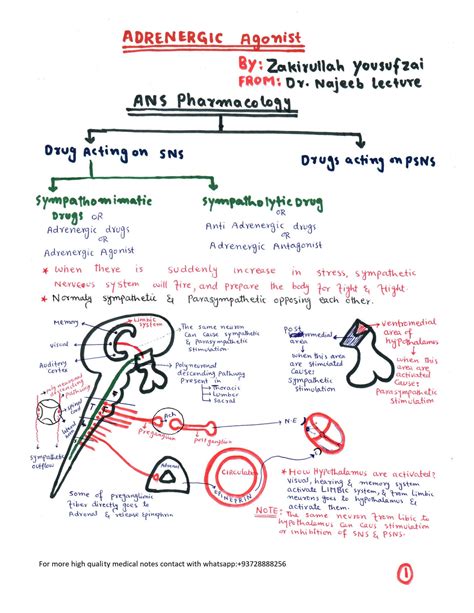 ADRENERGIC Agonist
BY: Zakirullah Yousufzai
FROM: Dr. Najeeb lecture
ANS Pharmacology
Drug Acting on SNS
Drugs acting on PSNS
Sympathomimatic Drugs
OR
Adrenergic drugs
OR
Adrenergic Agonist
Sympatholytic Drug
OR
Anti Adrenergic drugs
OR
Adrenergic Antagonist
* When there is suddenly increase in stress, sympathetic
Nervous system will fire, and prepare the body for Fight & Flight.
* Normaly sympathetic & Parasympathetic opposing each other.
Memory
Visual
Auditory
Cortex
Limbic
system
The same neuron
can cause sympathetic
& Parasympathetic
Stimulation
Polyneuronal
descending Pathway
Present in
Thoracic
Lumber
Sacral
Pathway
Spinal
cord
Lateral
area
Sympathetic
outflow
T
L
Ach
Preganglion
Postganglion
N.E
Post
medial
area
when this area
are stimulated
cause
Sympathetic
stimulation
Ventromedial
area of
hypothalamus
when this
area are
activated
Cause
Parasympathetic
Stimulation
Adrenal
Circulation
Epinephrin
Some of preganglionic
Fiber directly goes to
Adrenal & release Epinephrin
* How Hypothalamus are activated?
visual, hearing & memory system
activate LIMBIC system, & from Limbic
neurons goes to hypothalamus &
activate them.
NOTE: The same neuron from Libic to
hypothalamus can caus stimulation
or inhibition of SNS & PSNS.
For more high quality medical notes contact with whatsapp:+93728888256
1